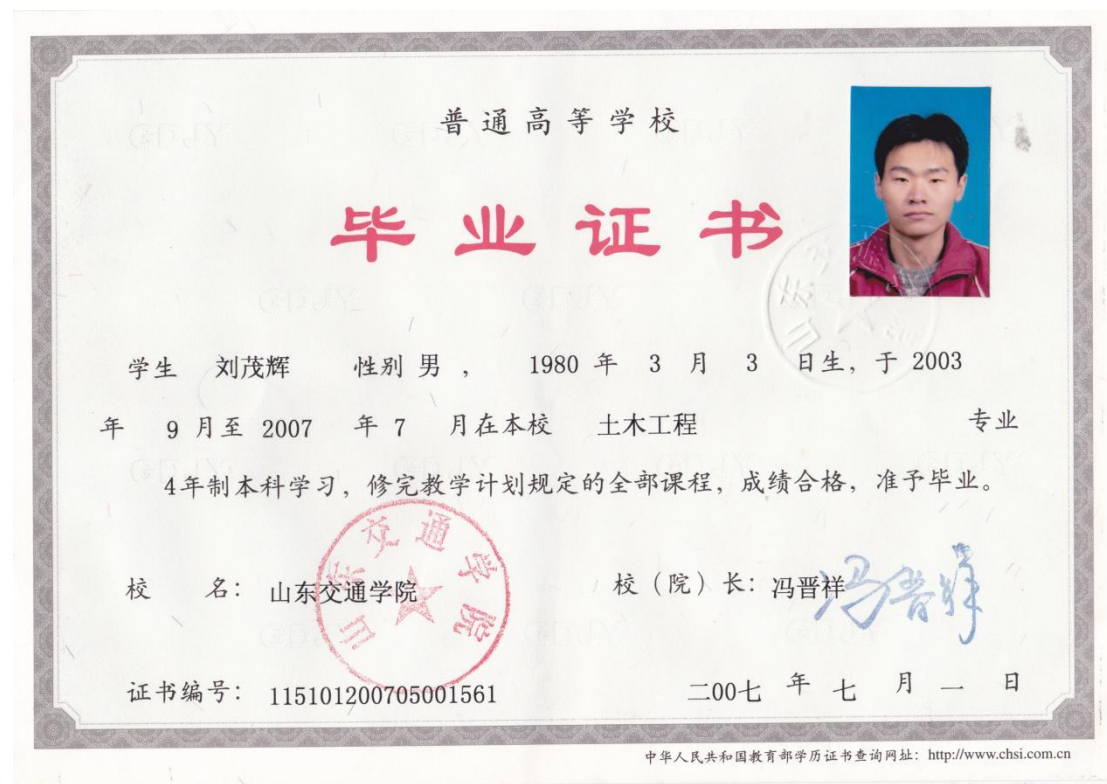 普通高等学校
毕业证书
学生 刘茂辉 性别 男 , 1980 年 3 月 3 日生, 于 2003
年 9 月至 2007 年 7 月在本校 土木工程 专业
4年制本科学习, 修完教学计划规定的全部课程, 成绩合格, 准予毕业。
校 名: 山东交通学院 校(院)长: 冯晋祥
山东交通学院
冯晋祥
证书编号: 115101200705001561 二00七 年 七 月 一 日
中华人民共和国教育部学历证书查询网址: http://www.chsi.com.cn